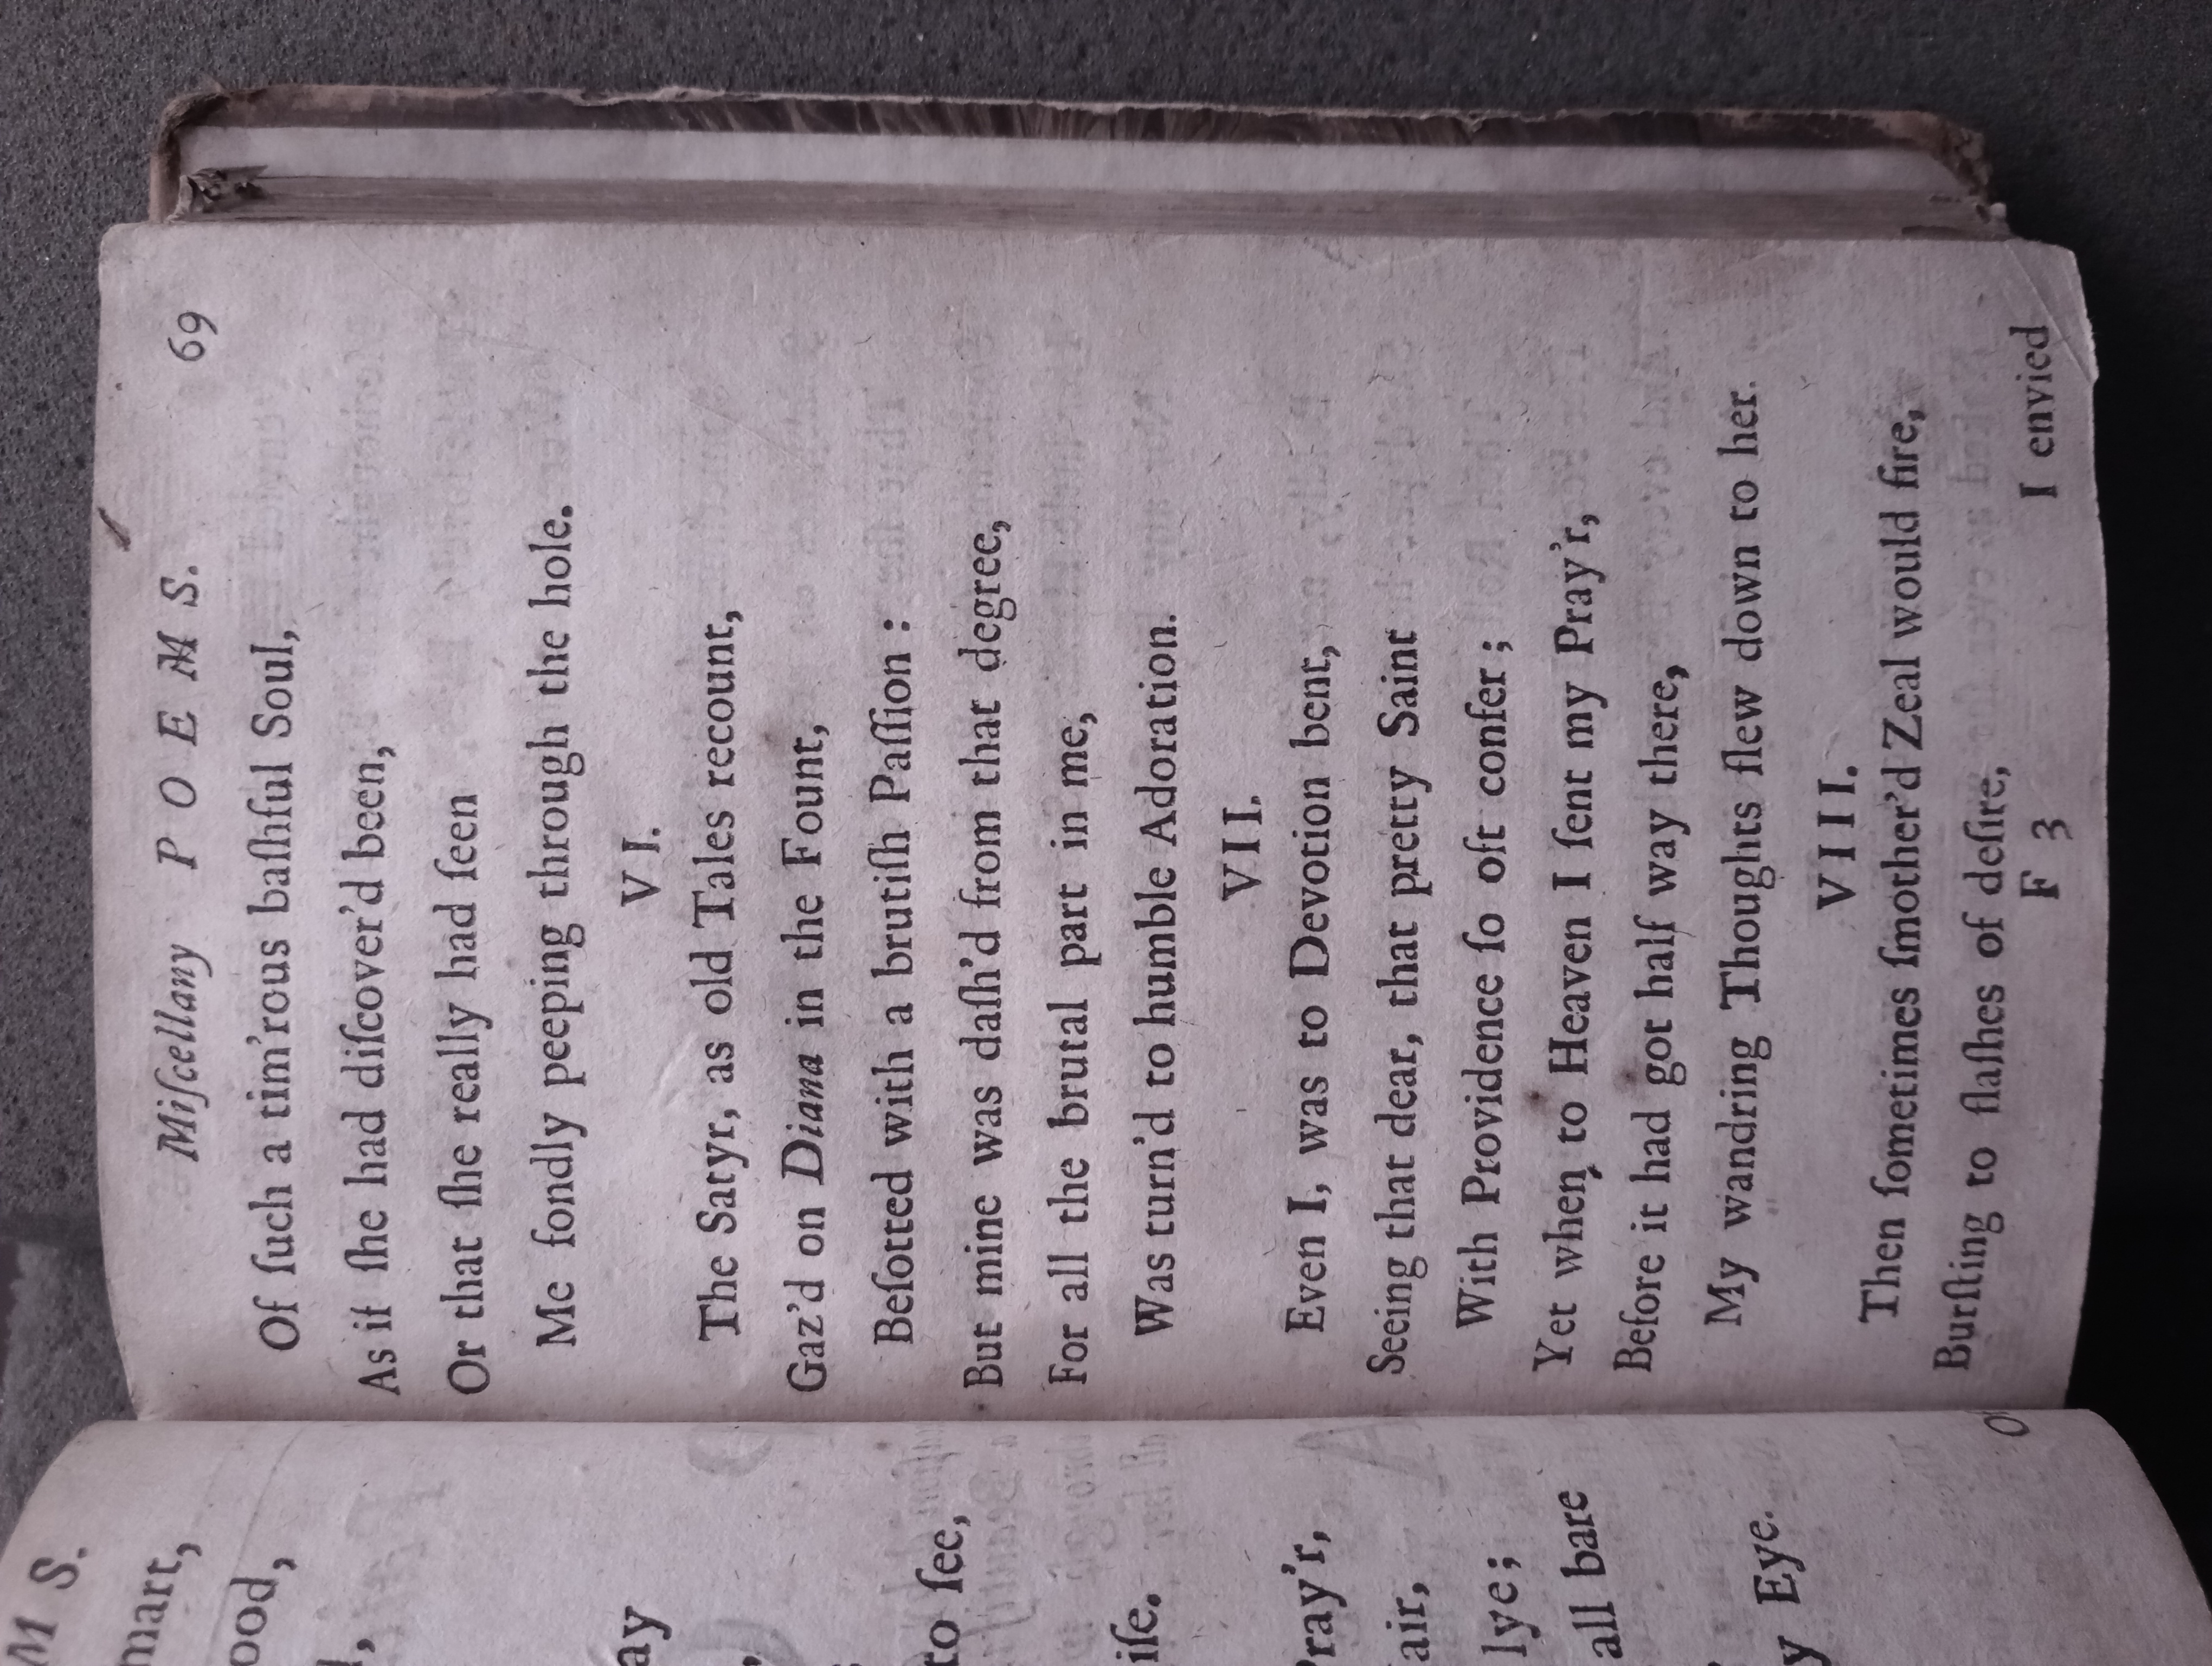 M S.
mart,
ood,
ay
to ſee,
iſe.
Pray'r,
air,
lye;
all bare
Eye.
Miſcellany P O E M S. 69
Of ſuch a tim'rous baſhful Soul,
As if ſhe had diſcover'd been,
Or that ſhe really had ſeen
Me fondly peeping through the hole.
V I.
The Satyr, as old Tales recount,
Gaz'd on Diana in the Fount,
Beſotted with a brutiſh Paſſion :
But mine was daſh'd from that degree,
For all the brutal part in me,
Was turn'd to humble Adoration.
V I I.
Even I, was to Devotion bent,
Seeing that dear, that pretty Saint
With Providence ſo oft confer ;
Yet when, to Heaven I ſent my Pray'r,
Before it had got half way there,
My wandring Thoughts flew down to her.
V I I I.
Then ſometimes ſmother'd Zeal would fire,
Burſting to flaſhes of deſire,
F 3
I envied